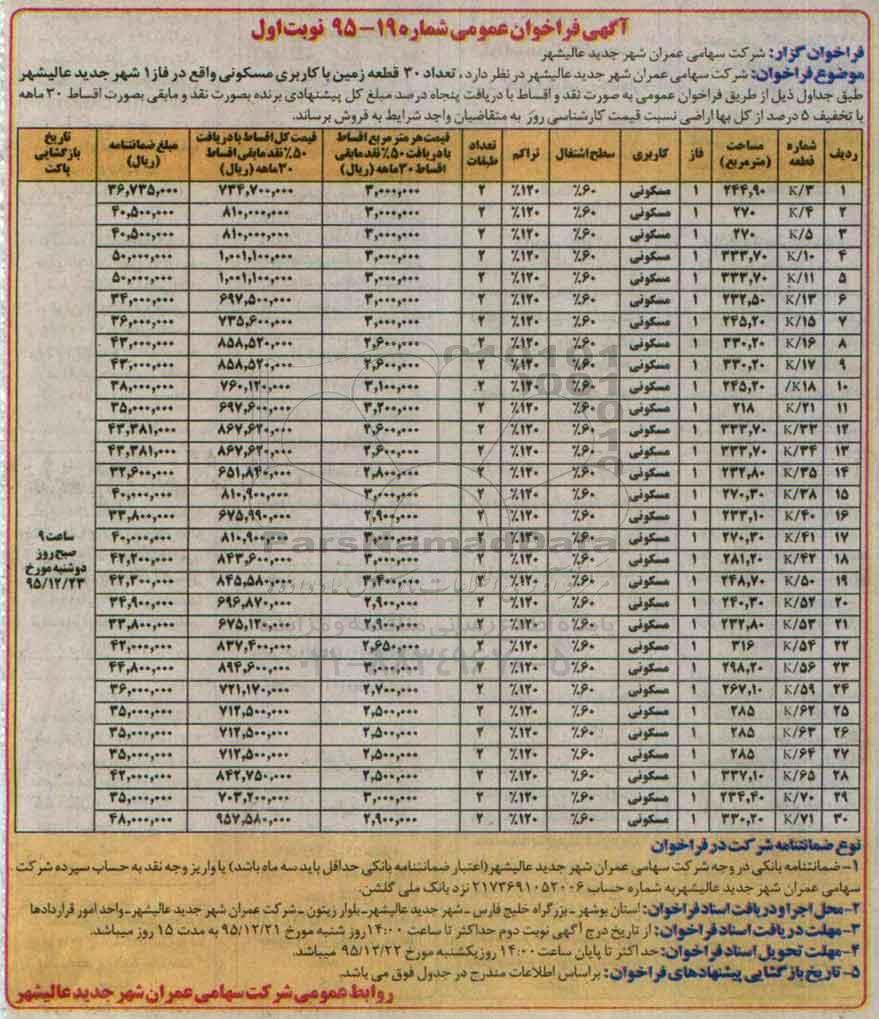 آگهی فراخوان عمومی شماره ۱۹-۹۵ نوبت اول
فراخوان گزار: شرکت سهامی عمران شهر جدید عالیشهر
موضوع فراخوان: شرکت سهامی عمران شهر جدید عالیشهر در نظر دارد، تعداد ۳۰ قطعه زمین با کاربری مسکونی واقع در فاز ۱ شهر جدید عالیشهر
طبق جداول ذیل از طریق فراخوان عمومی به صورت نقد و اقساط با دریافت پنجاه درصد مبلغ کل پیشنهادی برنده بصورت نقد و مابقی بصورت اقساط ۳۰ ماهه
با تخفیف ۵ درصد از کل بها اراضی نسبت قیمت کارشناسی روز به متقاضیان واجد شرایط به فروش برساند.
ردیف شماره قطعه مساحت (مترمربع) فاز کاربری سطح اشتغال تراکم تعداد طبقات قیمت هر متر مربع اقساط با دریافت ۵۰٪ نقد مابقی اقساط ۳۰ ماهه (ریال) قیمت کل اقساط با دریافت ۵۰٪ نقد مابقی اقساط ۳۰ ماهه (ریال) مبلغ ضمانتنامه (ریال) تاریخ بازگشایی پاکت
۱ K/۳ ۲۴۴,۹۰ ۱ مسکونی ٪۶۰ ٪۱۲۰ ۲ ۳,۰۰۰,۰۰۰ ۷۳۴,۷۰۰,۰۰۰ ۳۶,۷۳۵,۰۰۰
۲ K/۴ ۲۷۰ ۱ مسکونی ٪۶۰ ٪۱۲۰ ۲ ۳,۰۰۰,۰۰۰ ۸۱۰,۰۰۰,۰۰۰ ۴۰,۵۰۰,۰۰۰
۳ K/۵ ۲۷۰ ۱ مسکونی ٪۶۰ ٪۱۲۰ ۲ ۳,۰۰۰,۰۰۰ ۸۱۰,۰۰۰,۰۰۰ ۴۰,۵۰۰,۰۰۰
۴ K/۱۰ ۳۳۳,۷۰ ۱ مسکونی ٪۶۰ ٪۱۲۰ ۲ ۳,۰۰۰,۰۰۰ ۱,۰۰۱,۱۰۰,۰۰۰ ۵۰,۰۰۰,۰۰۰
۵ K/۱۱ ۳۳۳,۷۰ ۱ مسکونی ٪۶۰ ٪۱۲۰ ۲ ۳,۰۰۰,۰۰۰ ۱,۰۰۱,۱۰۰,۰۰۰ ۵۰,۰۰۰,۰۰۰
۶ K/۱۳ ۲۳۲,۵۰ ۱ مسکونی ٪۶۰ ٪۱۲۰ ۲ ۳,۰۰۰,۰۰۰ ۶۹۷,۵۰۰,۰۰۰ ۳۴,۰۰۰,۰۰۰
۷ K/۱۵ ۲۴۵,۲۰ ۱ مسکونی ٪۶۰ ٪۱۲۰ ۲ ۳,۰۰۰,۰۰۰ ۷۳۵,۶۰۰,۰۰۰ ۳۶,۰۰۰,۰۰۰
۸ K/۱۶ ۳۳۰,۲۰ ۱ مسکونی ٪۶۰ ٪۱۲۰ ۲ ۲,۶۰۰,۰۰۰ ۸۵۸,۵۲۰,۰۰۰ ۴۳,۰۰۰,۰۰۰
۹ K/۱۷ ۳۳۰,۲۰ ۱ مسکونی ٪۶۰ ٪۱۲۰ ۲ ۲,۶۰۰,۰۰۰ ۸۵۸,۵۲۰,۰۰۰ ۴۳,۰۰۰,۰۰۰
۱۰ /K۱۸ ۲۴۵,۲۰ ۱ مسکونی ٪۶۰ ٪۱۲۰ ۲ ۳,۱۰۰,۰۰۰ ۷۶۰,۱۲۰,۰۰۰ ۳۸,۰۰۰,۰۰۰
۱۱ K/۲۱ ۲۱۸ ۱ مسکونی ٪۶۰ ٪۱۲۰ ۲ ۳,۲۰۰,۰۰۰ ۶۹۷,۶۰۰,۰۰۰ ۳۵,۰۰۰,۰۰۰
۱۲ K/۳۳ ۳۳۳,۷۰ ۱ مسکونی ٪۶۰ ٪۱۲۰ ۲ ۲,۶۰۰,۰۰۰ ۸۶۷,۶۲۰,۰۰۰ ۴۳,۳۸۱,۰۰۰
۱۳ K/۳۴ ۳۳۳,۷۰ ۱ مسکونی ٪۶۰ ٪۱۲۰ ۲ ۲,۶۰۰,۰۰۰ ۸۶۷,۶۲۰,۰۰۰ ۴۳,۳۸۱,۰۰۰
۱۴ K/۳۵ ۲۳۲,۸۰ ۱ مسکونی ٪۶۰ ٪۱۲۰ ۲ ۲,۸۰۰,۰۰۰ ۶۵۱,۸۴۰,۰۰۰ ۳۲,۶۰۰,۰۰۰
۱۵ K/۳۸ ۲۷۰,۳۰ ۱ مسکونی ٪۶۰ ٪۱۲۰ ۲ ۳,۰۰۰,۰۰۰ ۸۱۰,۹۰۰,۰۰۰ ۴۰,۰۰۰,۰۰۰
۱۶ K/۴۰ ۲۳۳,۱۰ ۱ مسکونی ٪۶۰ ٪۱۲۰ ۲ ۲,۹۰۰,۰۰۰ ۶۷۵,۹۹۰,۰۰۰ ۳۳,۸۰۰,۰۰۰
۱۷ K/۴۱ ۲۷۰,۳۰ ۱ مسکونی ٪۶۰ ٪۱۲۰ ۲ ۳,۰۰۰,۰۰۰ ۸۱۰,۹۰۰,۰۰۰ ۴۰,۰۰۰,۰۰۰ ساعت ۹ صبح روز دوشنبه مورخ ۹۵/۱۲/۲۳
۱۸ K/۴۲ ۲۸۱,۲۰ ۱ مسکونی ٪۶۰ ٪۱۲۰ ۲ ۳,۰۰۰,۰۰۰ ۸۴۳,۶۰۰,۰۰۰ ۴۲,۲۰۰,۰۰۰
۱۹ K/۵۰ ۲۴۸,۷۰ ۱ مسکونی ٪۶۰ ٪۱۲۰ ۲ ۳,۴۰۰,۰۰۰ ۸۴۵,۵۸۰,۰۰۰ ۴۲,۳۰۰,۰۰۰
۲۰ K/۵۲ ۲۴۰,۳۰ ۱ مسکونی ٪۶۰ ٪۱۲۰ ۲ ۲,۹۰۰,۰۰۰ ۶۹۶,۸۷۰,۰۰۰ ۳۴,۹۰۰,۰۰۰
۲۱ K/۵۳ ۲۳۲,۸۰ ۱ مسکونی ٪۶۰ ٪۱۲۰ ۲ ۲,۹۰۰,۰۰۰ ۶۷۵,۱۲۰,۰۰۰ ۳۳,۸۰۰,۰۰۰
۲۲ K/۵۴ ۳۱۶ ۱ مسکونی ٪۶۰ ٪۱۲۰ ۲ ۲,۶۵۰,۰۰۰ ۸۳۷,۴۰۰,۰۰۰ ۴۲,۰۰۰,۰۰۰
۲۳ K/۵۶ ۲۹۸,۲۰ ۱ مسکونی ٪۶۰ ٪۱۲۰ ۲ ۳,۰۰۰,۰۰۰ ۸۹۴,۶۰۰,۰۰۰ ۴۴,۸۰۰,۰۰۰
۲۴ K/۵۹ ۲۶۷,۱۰ ۱ مسکونی ٪۶۰ ٪۱۲۰ ۲ ۲,۷۰۰,۰۰۰ ۷۲۱,۱۷۰,۰۰۰ ۳۶,۰۰۰,۰۰۰
۲۵ K/۶۲ ۲۸۵ ۱ مسکونی ٪۶۰ ٪۱۲۰ ۲ ۲,۵۰۰,۰۰۰ ۷۱۲,۵۰۰,۰۰۰ ۳۵,۰۰۰,۰۰۰
۲۶ K/۶۳ ۲۸۵ ۱ مسکونی ٪۶۰ ٪۱۲۰ ۲ ۲,۵۰۰,۰۰۰ ۷۱۲,۵۰۰,۰۰۰ ۳۵,۰۰۰,۰۰۰
۲۷ K/۶۴ ۲۸۵ ۱ مسکونی ٪۶۰ ٪۱۲۰ ۲ ۲,۵۰۰,۰۰۰ ۷۱۲,۵۰۰,۰۰۰ ۳۵,۰۰۰,۰۰۰
۲۸ K/۶۵ ۳۳۷,۱۰ ۱ مسکونی ٪۶۰ ٪۱۲۰ ۲ ۲,۵۰۰,۰۰۰ ۸۴۲,۷۵۰,۰۰۰ ۴۲,۰۰۰,۰۰۰
۲۹ K/۷۰ ۲۳۴,۴۰ ۱ مسکونی ٪۶۰ ٪۱۲۰ ۲ ۳,۰۰۰,۰۰۰ ۷۰۳,۲۰۰,۰۰۰ ۳۵,۰۰۰,۰۰۰
۳۰ K/۷۱ ۳۳۰,۲۰ ۱ مسکونی ٪۶۰ ٪۱۲۰ ۲ ۲,۹۰۰,۰۰۰ ۹۵۷,۵۸۰,۰۰۰ ۴۸,۰۰۰,۰۰۰
نوع ضمانتنامه شرکت در فراخوان
۱- ضمانتنامه بانکی در وجه شرکت سهامی عمران شهر جدید عالیشهر (اعتبار ضمانتنامه بانکی حداقل باید سه ماه باشد) یا واریز وجه نقد به حساب سپرده شرکت
سهامی عمران شهر جدید عالیشهر به شماره حساب ۲۱۷۳۶۹۱۰۵۲۰۰۶ نزد بانک ملی گلشن.
۲- محل اجرا و دریافت اسناد فراخوان: استان بوشهر - بزرگراه خلیج فارس - شهر جدید عالیشهر - بلوار زیتون - شرکت عمران شهر جدید عالیشهر - واحد امور قراردادها
۳- مهلت دریافت اسناد فراخوان: از تاریخ درج آگهی نوبت دوم حداکثر تا ساعت ۱۴:۰۰ روز شنبه مورخ ۹۵/۱۲/۲۱ به مدت ۱۵ روز میباشد.
۴- مهلت تحویل اسناد فراخوان: حداکثر تا پایان ساعت ۱۴:۰۰ روز یکشنبه مورخ ۹۵/۱۲/۲۲ میباشد.
۵- تاریخ بازگشایی پیشنهادهای فراخوان: براساس اطلاعات مندرج در جدول فوق می باشد.
روابط عمومی شرکت سهامی عمران شهر جدید عالیشهر